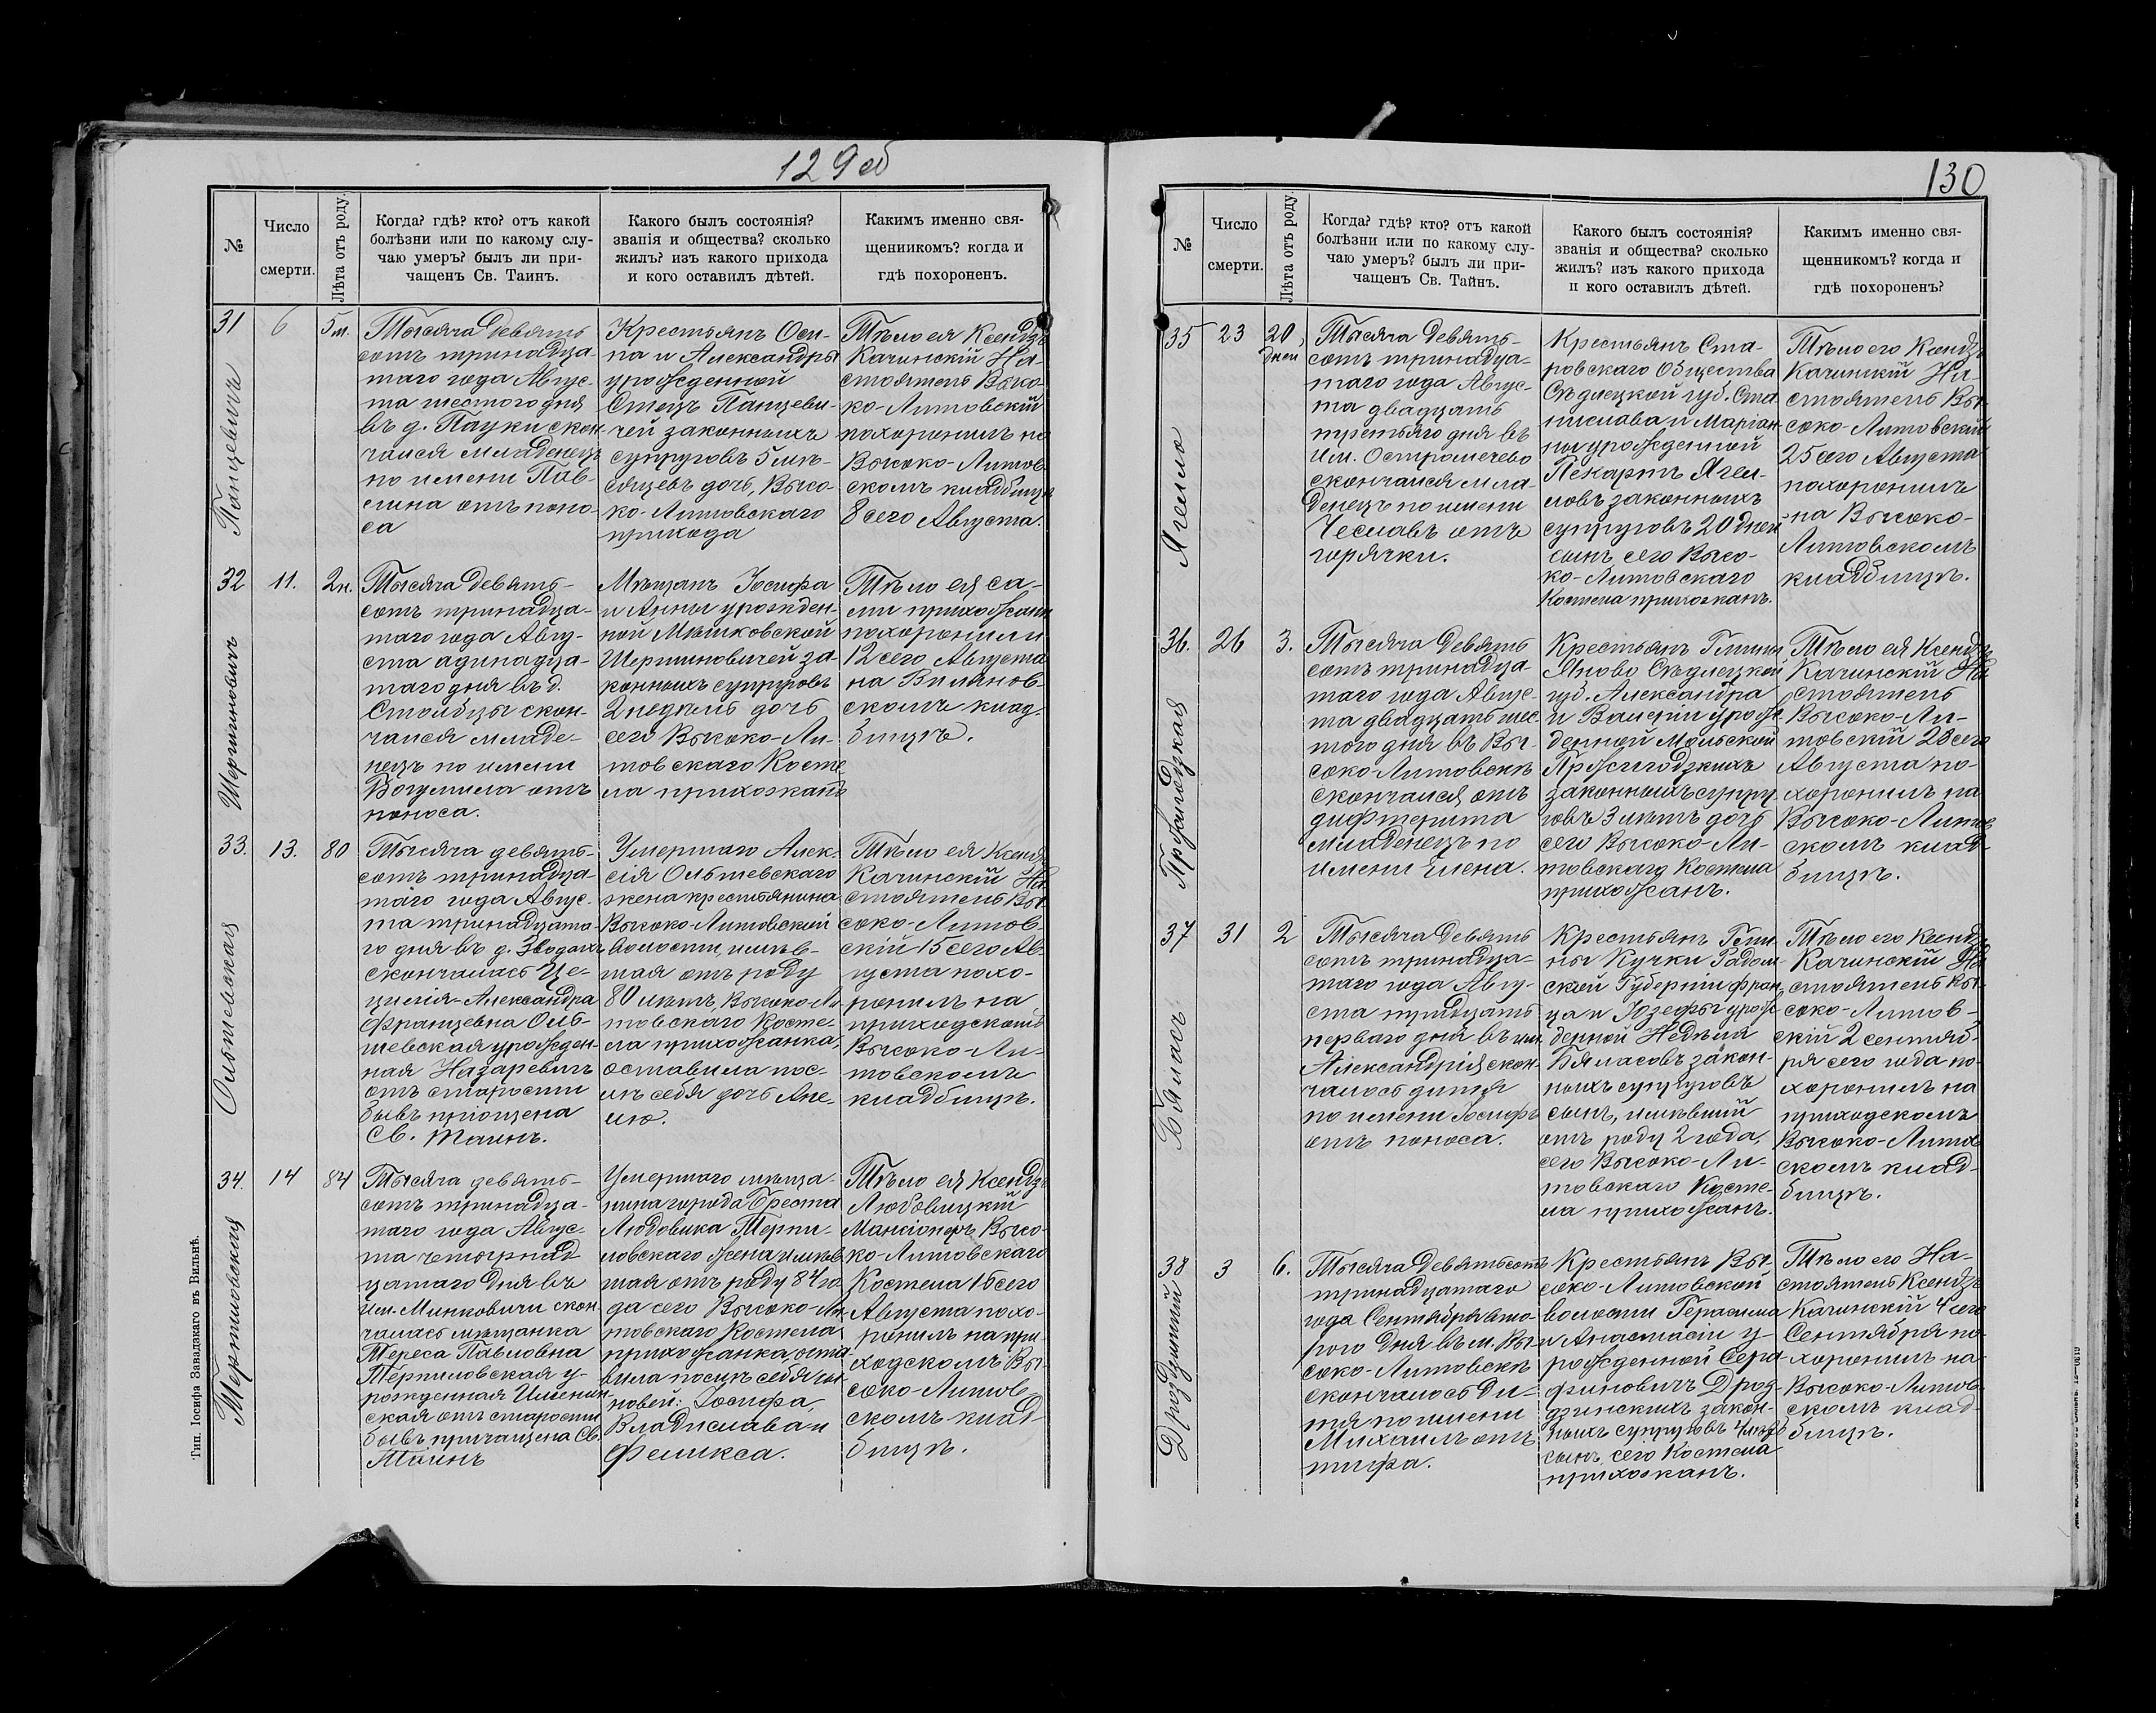 129 об
№
Число
смерти.
Лѣта отъ роду.
Когда? гдѣ? кто? отъ какой
болѣзни или по какому слу-
чаю умеръ? былъ ли при-
чащенъ Св. Таинъ.
Какого былъ состоянія?
званія и общества? сколько
жилъ? изъ какого прихода
и кого оставилъ дѣтей.
Какимъ именно свя-
щенникомъ? когда и
гдѣ похороненъ.
31
Панцевичъ
6
5 м.
Тысяча девять
сотъ тринадца-
таго года Авгус-
та шестого дня
въ д. Пауки скон-
чался младенецъ
по имени Пав-
лина отъ поно-
са
Крестьянъ Оси-
па и Александры
урожденной
Стецъ Панцеви-
чей законныхъ
супруговъ 5 мѣ-
сяцевъ дочь, Высо-
ко-Литовскаго
прихода
Тѣло ея Ксендзъ
Качинскій На-
стоятель Высо-
ко-Литовскій
похоронилъ на
Высоко-Литов-
скомъ кладбищѣ
8 сего Августа.
32
Шерпиновичъ
11.
2 н.
Тысяча девять-
сотъ тринадца-
таго года Авгу-
ста адинадца-
таго дня въ д.
Столбцы скон-
чался младе-
нецъ по имени
Богумила отъ
поноса.
Мѣщанъ Іосифа
и Анны урожден-
ной Мѣшковской
Шерпиновичей за-
конныхъ супруговъ
2 недѣль дочь
сего Высоко-Ли-
товскаго Косте-
ла прихожанъ
Тѣло ея са-
ми прихожане
похоронили
12 сего Августа
на Вилянов-
скомъ клад-
бищѣ.
33.
Ольшевская
13.
80
Тысяча девять-
сотъ тринадца-
таго года Авгус-
та тринадцата-
го дня въ д. Зводахъ
скончалась Це-
цилія-Александра
Францевна Оль-
шевская урожден-
ная Назаревичъ
отъ старости
бывъ пріощена
Св. Таинъ.
Умершаго Алек-
сія Ольшевскаго
жена крестьянина
Высоко-Литовскій
волости, имѣв-
шая отъ роду
80 лѣтъ, Высоко-Ли-
товскаго Косте-
ла прихожанка,
оставила пос-
лѣ себя дочь Анe-
лю.
Тѣло ея Ксендзъ
Качинскій На-
стоятель Вы-
соко-Литов-
скій 15 сего Ав-
густа похо-
ронилъ на
приходскомъ
Высоко-Ли-
товскомъ
кладбищѣ.
34.
Терпиловская
14
84
Тысяча девять-
сотъ тринадца-
таго года Авгус-
та четырнад-
цатаго дня въ
им. Минковичи скон-
чалась мѣщанка
Тереса Павловна
Терпиловская у-
рожденная
ская отъ старости
бывъ причащена Св.
Таинъ
Умершаго мѣща-
нина города Бреста
Людовика Терпи-
ловскаго жена имѣв-
шая отъ роду 84 го-
да сего Высоко-Ли-
товскаго Костела
прихожанка, оста-
вила послѣ себя сы-
новей: Іосифа,
Владислава и
Феликса.
Тѣло ея Ксендзъ
Любовицкій
Мансіонаръ Высо-
ко-Литовскаго
Костела 16 сего
Августа похо-
ронилъ на при-
ходскомъ Вы-
соко-Литов-
скомъ клад-
бищѣ.
Тип. Іосифа Завадзкаго въ Вильнѣ.
130
№
Число
смерти.
Лѣта отъ роду.
Когда? гдѣ? кто? отъ какой
болѣзни или по какому слу-
чаю умеръ? былъ ли при-
чащенъ Св. Тайнъ.
Какого былъ состоянія?
званія и общества? сколько
жилъ? изъ какого прихода
и кого оставилъ дѣтей.
Какимъ именно свя-
щенникомъ? когда и
гдѣ похороненъ?
35
Ягелло
23
20
дней
Тысяча девять-
сотъ тринадца-
таго года Авгус-
та двадцать
третьяго дня въ
им. Остромечево
скончался мла-
денецъ по имени
Чеславъ отъ
горячки.
Крестьянъ Ста-
ровскаго Общества
Сѣдлецкой губ. Ста-
нислава и Маріан-
ны урожденной
Пекартъ Ягел-
ловъ законныхъ
супруговъ 20 дней
сынъ сего Высо-
ко-Литовскаго
Костела прихожанъ.
Тѣло его Ксендзъ
Качинскій На-
стоятель Вы-
соко-Литовскій
25 сего Августа
похоронилъ
на Высоко-
Литовскомъ
кладбищѣ.
36.
Пржигодзкая
26
3.
Тысяча девять
сотъ тринадца-
таго года Авгус-
та двадцать шес-
того дня въ Вы-
соко-Литовскѣ
скончался отъ
дифтерита
младенецъ по
имени Елена.
Крестьянъ Гмины
Яново Сѣдлецкой
губ. Александра
и Валеріи урож-
денной Мольской
Пржигодзкихъ
законныхъ супру-
говъ 3 лѣтъ дочь
сего Высоко-Ли-
товскаго Костела
прихожанъ.
Тѣло ея Ксендзъ
Качинскій На-
стоятель
Высоко-Ли-
товскій 28 сего
Августа по-
хоронилъ на
Высоко-Литов-
скомъ клад-
бищѣ.
37
Бяласъ
31
2
Тысяча девять
сотъ тринадца-
таго года Авгу-
ста тридцать
перваго дня въ им.
Александрія скон-
чалось дитя
по имени Іосифъ
отъ поноса.
Крестьянъ Гми-
ны Кучки Радом-
ской Губерніи Фран-
ца и Іозефы урож-
денной Недзѣля
Бяласовъ закон-
ныхъ супруговъ
сынъ, имѣвшій
отъ роду 2 года,
сего Высоко-Ли-
товскаго Косте-
ла прихожанъ.
Тѣло его Ксендзъ
Качинскій На-
стоятель Вы-
соко-Литов-
скій 2 сентяб-
ря сего года по-
хоронилъ на
приходскомъ
Высоко-Литов-
скомъ клад-
бищѣ.
38
Дроздзинскій
3
6.
Тысяча девятьсотъ
тринадцатаго
года Сентября вто-
рого дня въ м. Вы-
соко-Литовскѣ
скончалось ди-
тя по имени
Михаилъ отъ
тифа.
Крестьянъ Вы-
соко-Литовской
волости Герасима
и Анастасіи у-
рожденной Сера-
финовичъ Дрод-
дзинскихъ закон-
ныхъ супруговъ
сынъ сего Костела
прихожанъ.
Тѣло его На-
стоятель Ксендзъ
Качинскій 4 сего
Сентября по-
хоронилъ на
Высоко-Литов-
скомъ клад-
бищѣ.